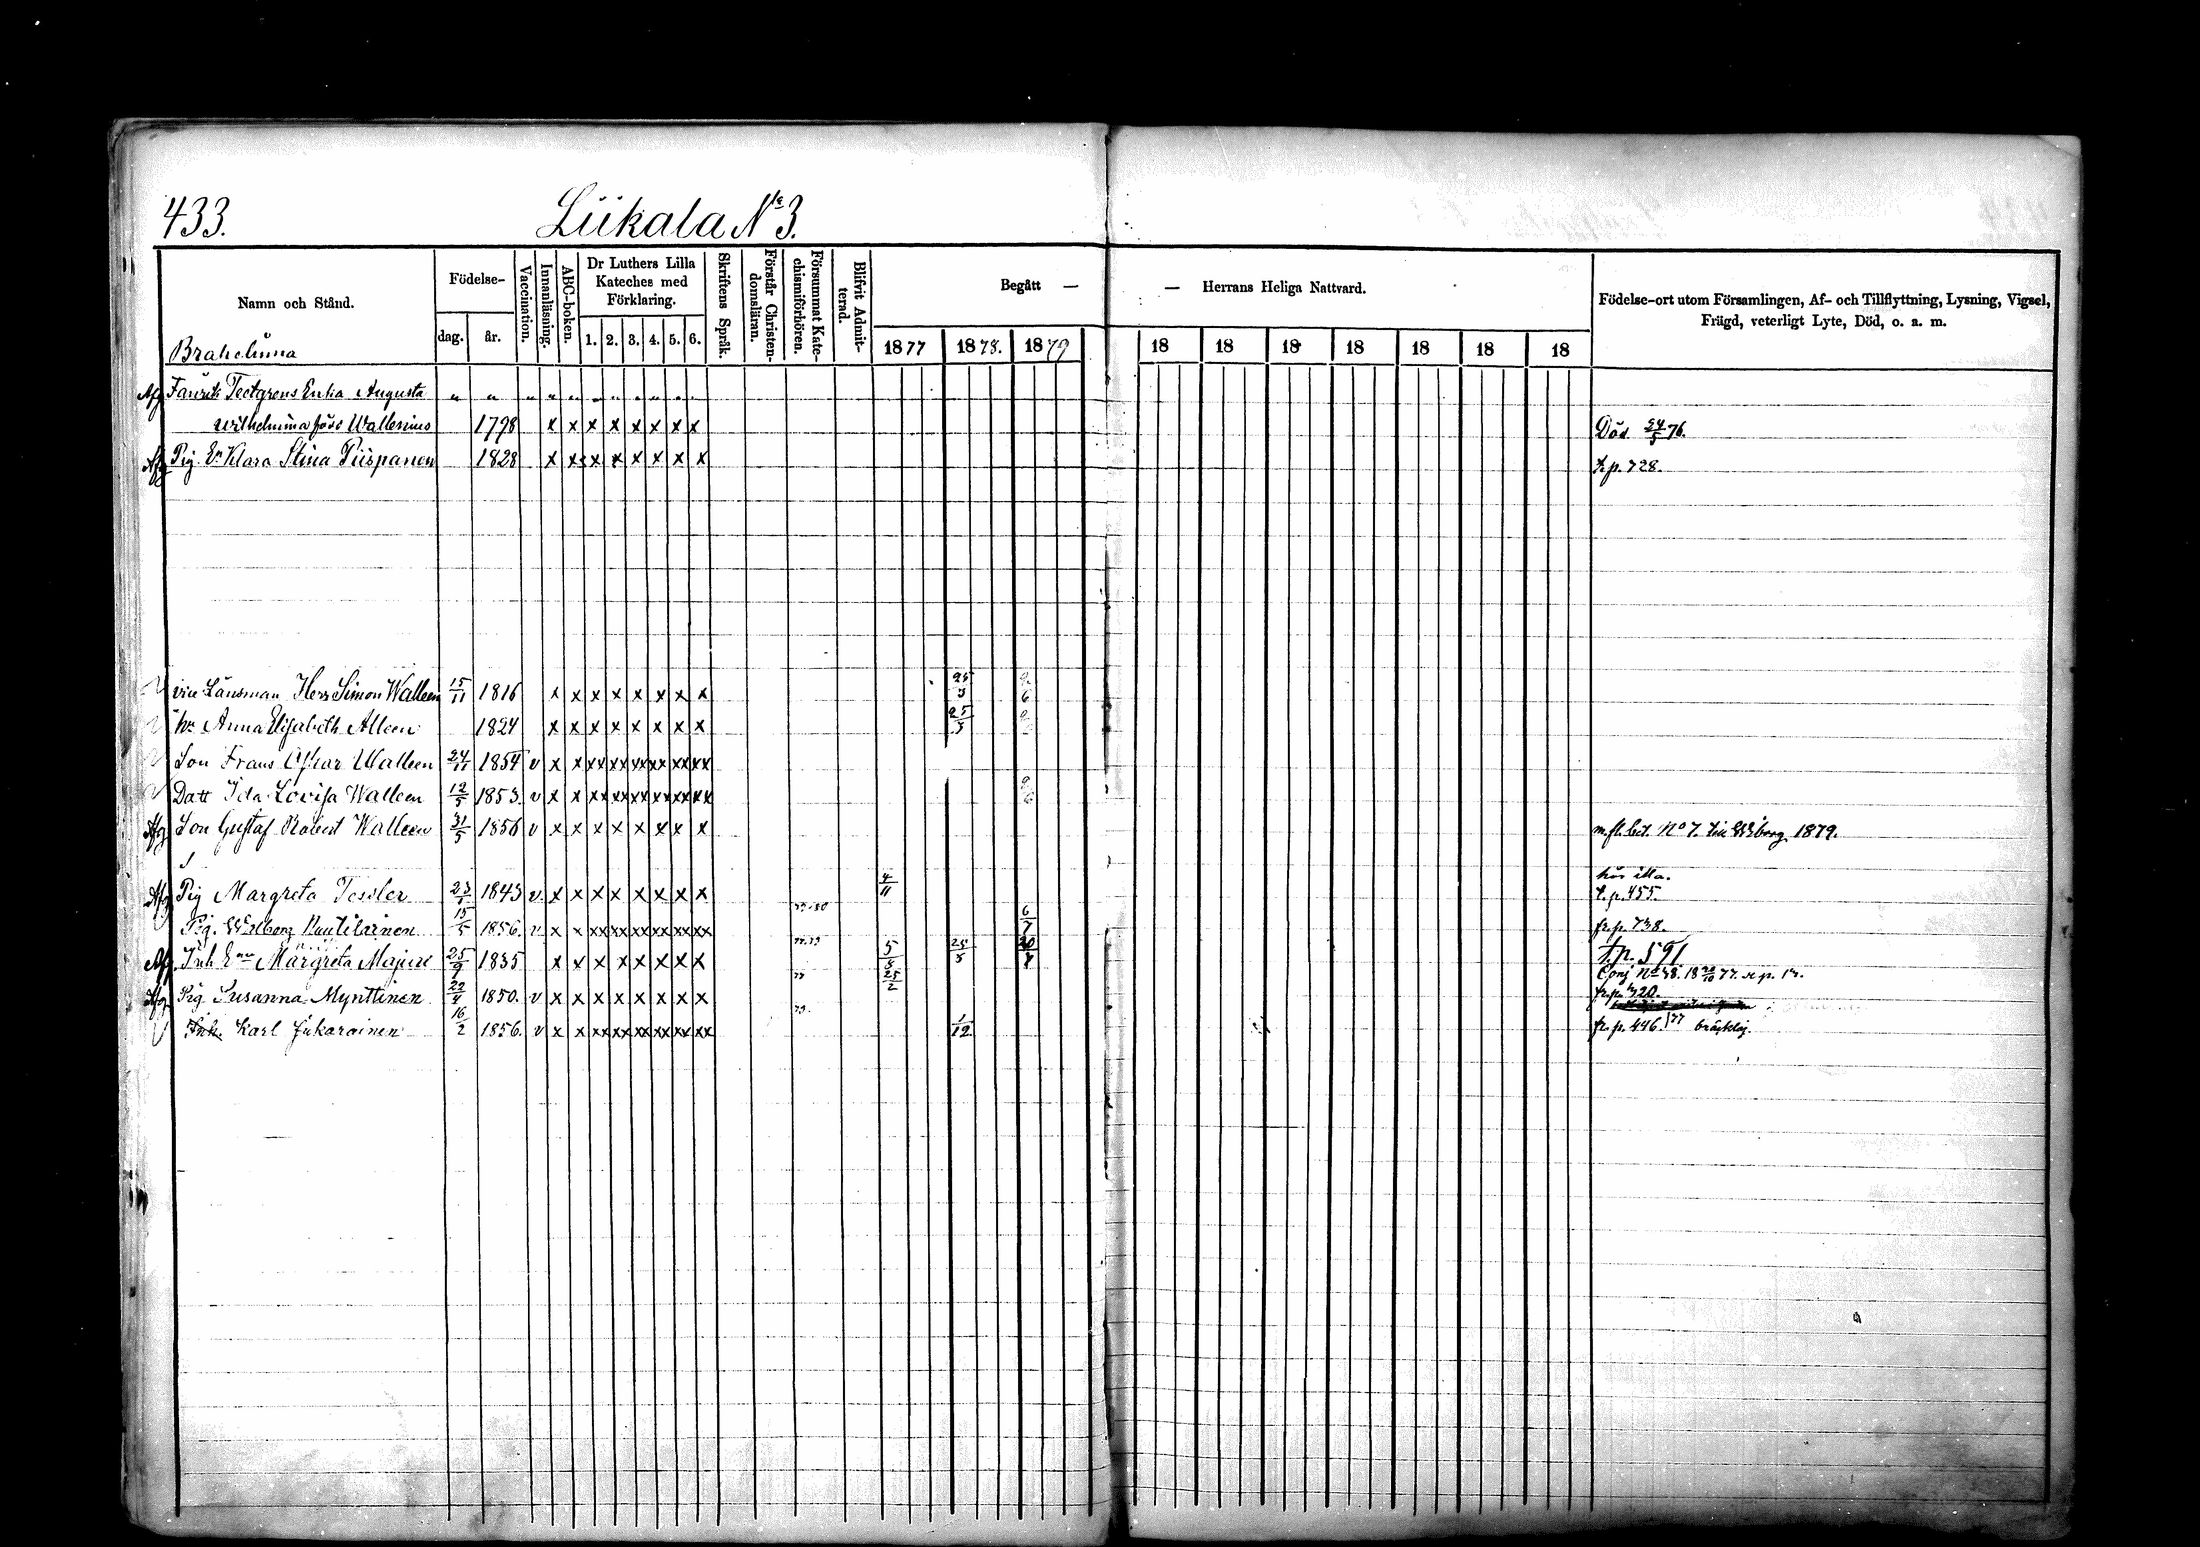 433. Liikala No 3.
Namn och Stånd.
Födelse-
dag. år.
Vaccination.
Innanläsning.
ABC-boken.
Dr Luthers Lilla
Kateches med
Förklaring.
1. 2. 3. 4. 5. 6.
Skriftens Språk.
Förstår Christen-
domsläran.
Försummat Kate-
chismiförhören.
Blifvit Admit-
terad.
Begått — — Herrans Heliga Nattvard.
1877 1878. 1879 18 18 18 18 18 18 18
Födelse-ort utom Församlingen, Af- och Tillflyttning, Lysning, Vigsel,
Frägd, veterligt Lyte, Död, o. a. m.
Afg Tectgrens Enka Augusta " " " " " " " " " " "
Wilhelmina Wallenius 1798 x x x x x x x x Död 24/5 76.
Afg Pig. Klara Stina Piispanen 1828 x x x x x x x x p. 728.
vice Länsman Herr Simon Walleen 15/11 1816 x x x x x x x x 25/3
Anna Elisabeth Alleen 1824 x x x x x x x x 25/3
Son Frans Oskar Walleen 24/11 1854 v x x xx xx xx xx xx xx
Dott Ida Lovisa Walleen 12/5 1853. v x x xx xx xx xx xx xx
Afg Son Gustaf Robert Walleen 31/5 1856 v x x x x x x x x No 7. Wiborg 1879.
Afg Pig Margreta Tessler 1843 v. x x x x x x x x 4/11 hör illa.
t. p. 455.
Pig. Walborg 15/5 1856. v x x xx xx xx xx xx xx 6/7 fr. p. 738.
Afg. Inh Margreta 25/9 1835 x x x x x x x x t. p. 591
Afg Pig Susanna Mynttinen 22/4 1850. v x x x x x x x x 25/2
Inh. Karl Jukarainen 16/2 1856. v x x xx xx xx xx xx xx 1/12 fr. p. 446